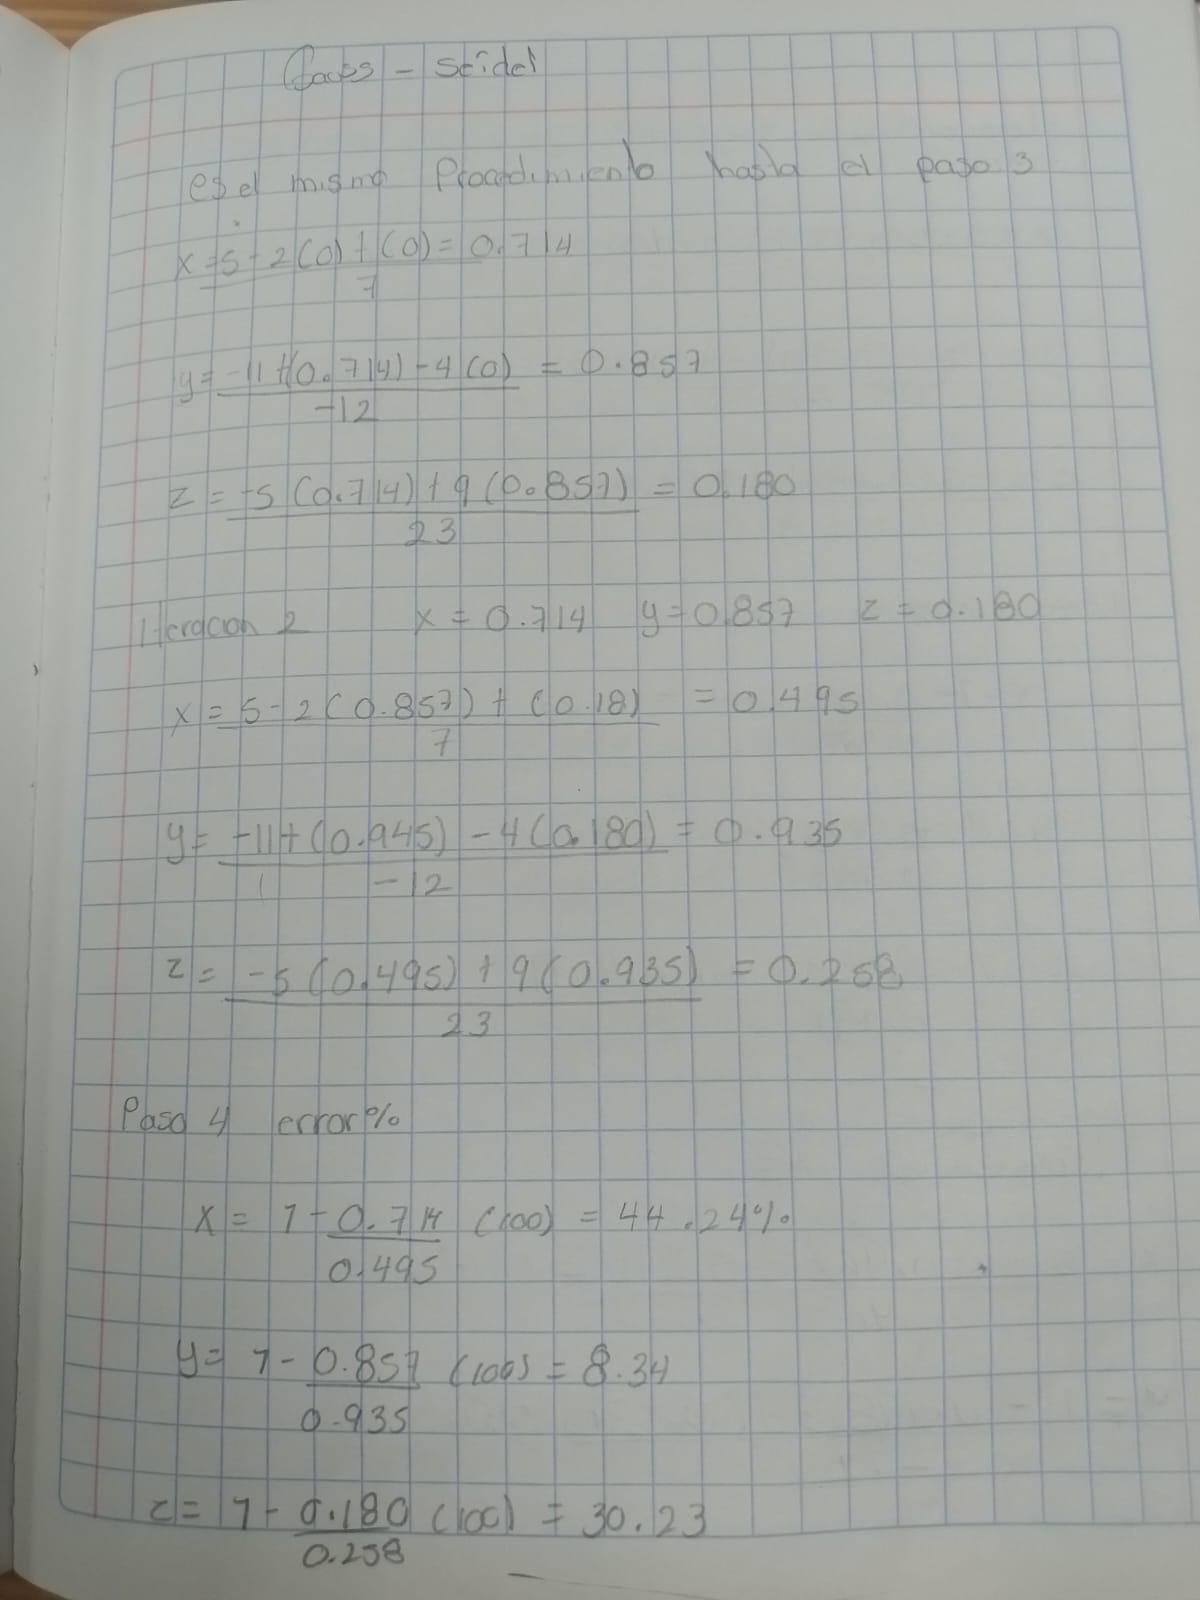 Gauss - Seidel
es el mismo Procedimiento hasta el paso 3
x = 5 - 2(0) + (0) = 0.714
7
y = -11 + (0.714) - 4(0) = 0.857
-12
z = -5 (0.714) + 9 (0.857) = 0.180
23
Iteracion 2 x = 0.714 y = 0.857 z = 0.180
x = 5 - 2 (0.857) + (0.18) = 0.495
7
y = -11 + (0.945) - 4(0.180) = 0.935
-12
z = -5 (0.495) + 9 (0.935) = 0.258
23
Paso 4 error %
x = 1 - 0.714 (100) = 44.24%
0.495
y = 1 - 0.857 (100) = 8.34
0.935
z = 1 - 0.180 (100) = 30.23
0.258